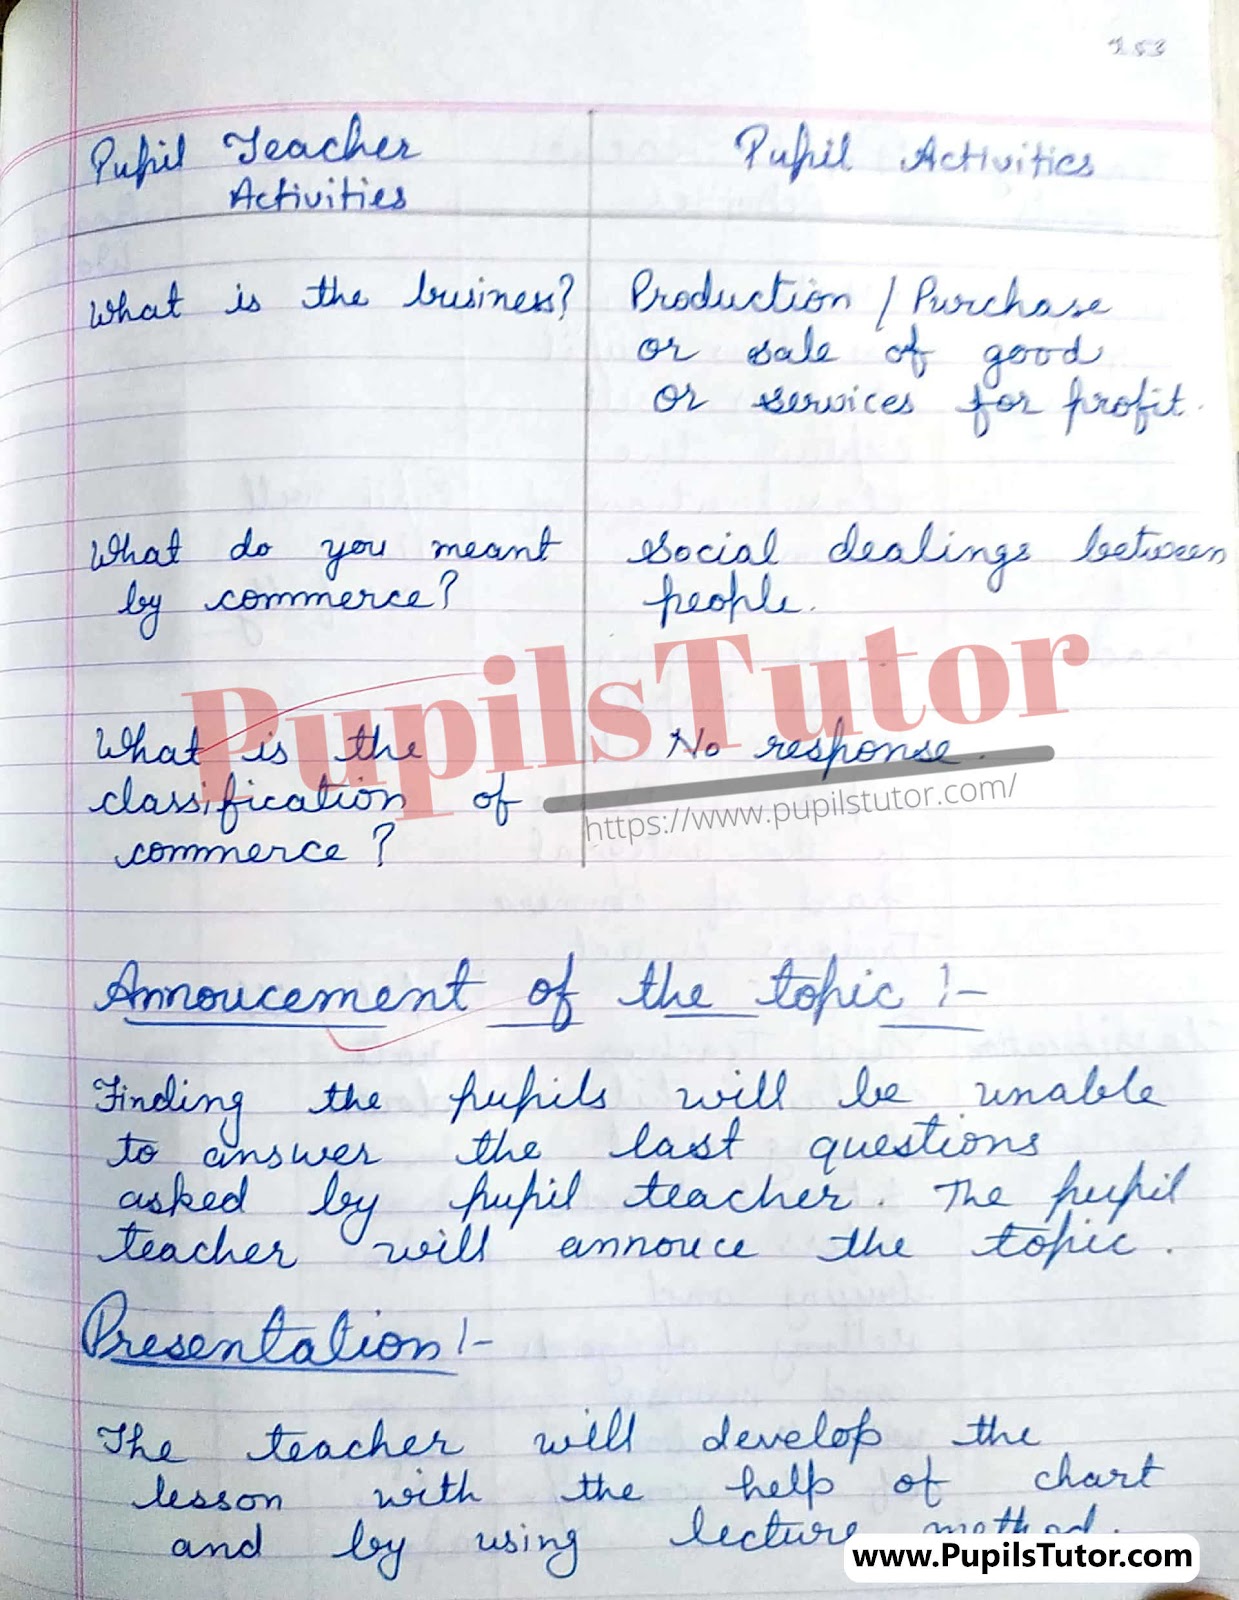 153
Pupil Teacher
Activities
Pupil Activities
What is the business?
Production / Purchase
or sale of good
or services for profit.
What do you meant
by commerce?
Social dealings between
people.
PupilsTutor
https://www.pupilstutor.com/
What is the
classification of
commerce?
No response.
Annoucement of the topic :-
Finding the pupils will be unable
to answer the last questions
asked by pupil teacher. The pupil
teacher will annouce the topic.
Presentation :-
The teacher will develop the
lesson with the help of chart
and by using lecture method.
www.PupilsTutor.com